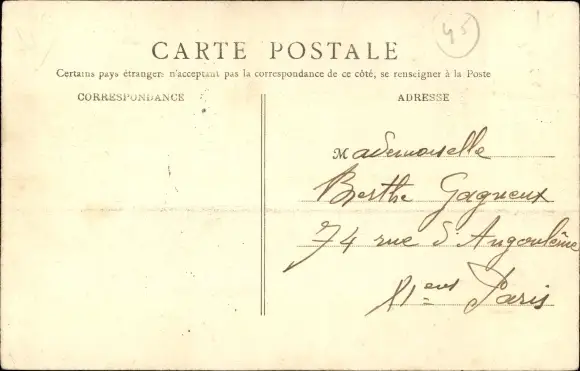 45
CARTE POSTALE
Certains pays étrangers n'acceptant pas la correspondance de ce côté, se renseigner à la Poste
CORRESPONDANCE
ADRESSE
Mademoiselle
Berthe Gagneux
74 rue d'Angoulême
XI ème Paris